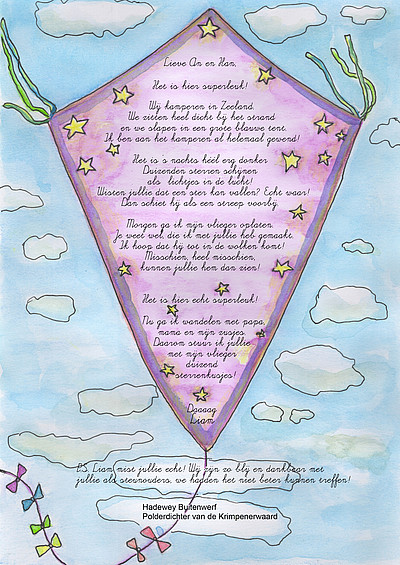 Lieve An en Han,
Het is hier superleuk!
Wij kamperen in Zeeland.
We zitten heel dicht bij het strand
en we slapen in een grote blauwe tent.
Ik ben aan het kamperen al helemaal gewend!
Het is 's nachts héél erg donker.
Duizenden sterren schijnen
als lichtjes in de lucht.
Wisten jullie dat een ster kan vallen? Echt waar!
Dan schiet hij als een streep voorbij.
Morgen ga ik mijn vlieger oplaten.
Je weet wel, die ik met jullie heb gemaakt.
Ik hoop dat hij tot in de wolken komt!
Misschien, heel misschien,
kunnen jullie hem dan zien!
Het is hier echt superleuk!
Nu ga ik wandelen met papa,
mama en mijn zusjes.
Daarom stuur ik jullie
met mijn vlieger
duizend
sterrenkusjes!
Daaaag
Liam
P.S. Liam mist jullie echt! Wij zijn zo blij en dankbaar met
jullie als steunouders, we hadden het niet beter kunnen treffen!
Hadewey Buitenwerf
Polderdichter van de Krimpenerwaard